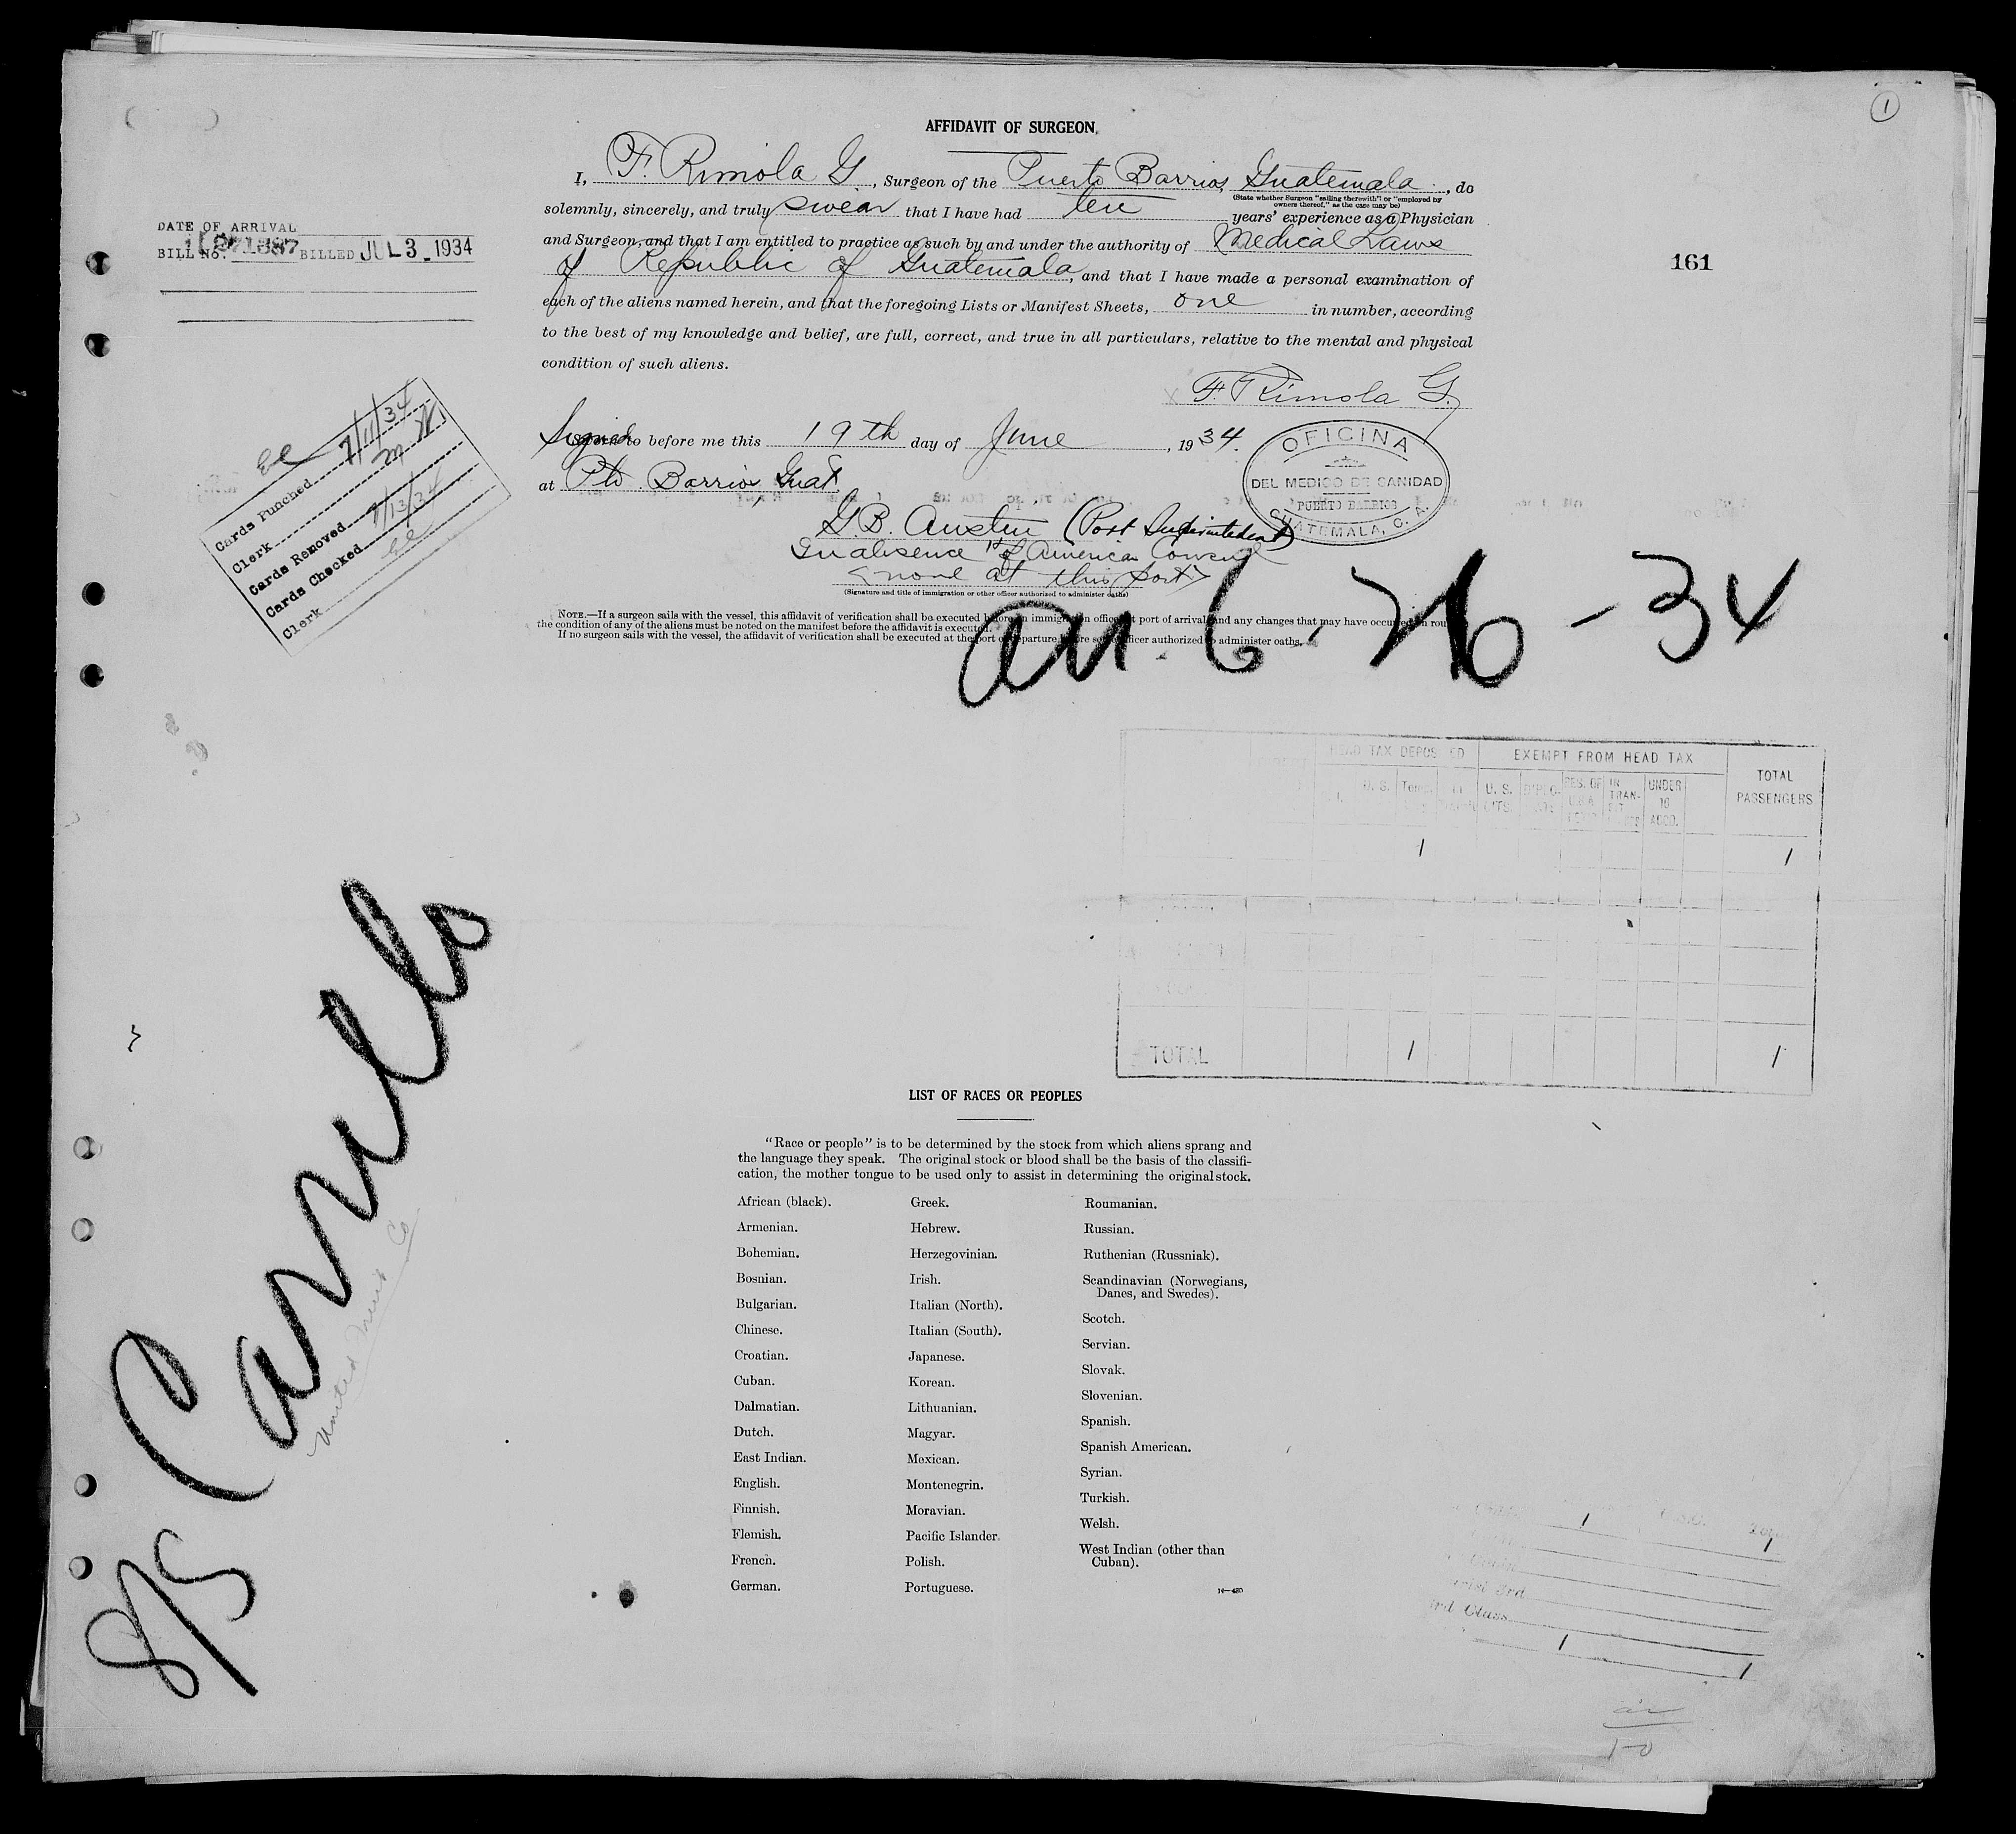 1
AFFIDAVIT OF SURGEON
I, F. Rimola G., Surgeon of the Puerto Barrios, Guatemala, do
(State whether Surgeon "sailing therewith" or "employed by
owners thereof," as the case may be)
solemnly, sincerely, and truly swear that I have had ten years' experience as a Physician
and Surgeon, and that I am entitled to practice as such by and under the authority of Medical Laws
of Republic of Guatemala, and that I have made a personal examination of
each of the aliens named herein, and that the foregoing Lists or Manifest Sheets, one in number, according
to the best of my knowledge and belief, are full, correct, and true in all particulars, relative to the mental and physical
condition of such aliens.
F. Rimola G.
Signed to before me this 19th day of June, 1934.
at Pto. Barrios, Guat.
G.B. Austin (Port Superintendent)
In absence of American Consul
<none at this port>
(Signature and title of immigration or other officer authorized to administer oaths)
OFICINA
DEL MEDICO DE SANIDAD
PUERTO BARRIOS
GUATEMALA, C. A.
NOTE.—If a surgeon sails with the vessel, this affidavit of verification shall be executed before an immigration officer at port of arrival and any changes that may have occurred en route in
the condition of any of the aliens must be noted on the manifest before the affidavit is executed.
If no surgeon sails with the vessel, the affidavit of verification shall be executed at the port of departure before some officer authorized to administer oaths.
DATE OF ARRIVAL
BILL No. BILLED JUL 3 - 1934
161
Cards Punched 7/11/34
Clerk
Cards Removed 7/13/34
Cards Checked
Clerk
arr. 6-26-34
HEAD TAX DEPOSITED
EXEMPT FROM HEAD TAX
TOTAL
PASSENGERS
U. S.
Temp.
U. S.
CITS.
DIPLO-
RES. OF
U.S.A.
IN
TRAN-
SIT
UNDER
16
ACCO.
1 1
TOTAL 1 1
S/S Carrillo
United Fruit Co
LIST OF RACES OR PEOPLES
"Race or people" is to be determined by the stock from which aliens sprang and
the language they speak. The original stock or blood shall be the basis of the classifi-
cation, the mother tongue to be used only to assist in determining the original stock.
African (black).
Armenian.
Bohemian.
Bosnian.
Bulgarian.
Chinese.
Croatian.
Cuban.
Dalmatian.
Dutch.
East Indian.
English.
Finnish.
Flemish.
French.
German.
Greek.
Hebrew.
Herzegovinian.
Irish.
Italian (North).
Italian (South).
Japanese.
Korean.
Lithuanian.
Magyar.
Mexican.
Montenegrin.
Moravian.
Pacific Islander.
Polish.
Portuguese.
Roumanian.
Russian.
Ruthenian (Russniak).
Scandinavian (Norwegians,
Danes, and Swedes).
Scotch.
Servian.
Slovak.
Slovenian.
Spanish.
Spanish American.
Syrian.
Turkish.
Welsh.
West Indian (other than
Cuban).
1
1
3rd
3rd Class
1
1